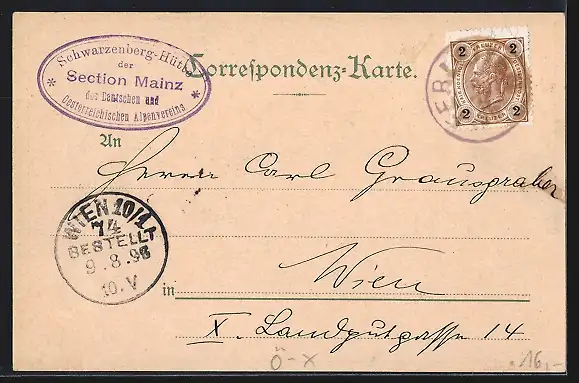 Schwarzenberg-Hütte
der
Section Mainz
des Deutschen und
Oesterreichischen Alpenvereins
Correspondenz-Karte.
2 KREUZER 2
2 KREUZER 2
An
Herrn Carl Grausgruber
WIEN 10/1
74
BESTELLT
9.8.98
10.V
Wien
in
X. Landgutgasse 14
Ö-X
16,-